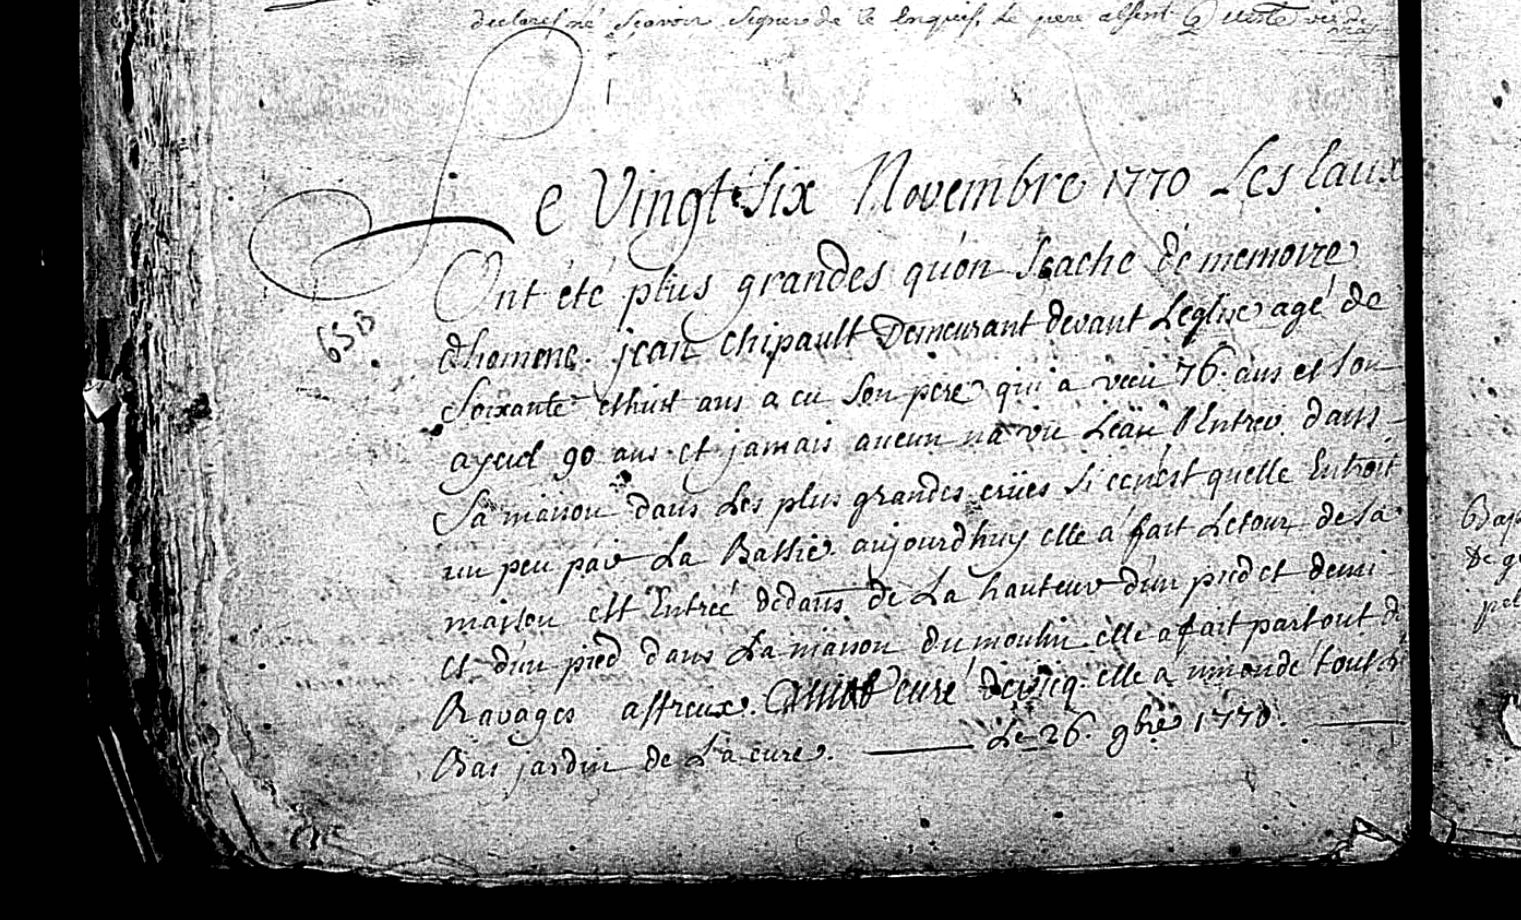 declaret né Sçavoir Signer de ce Enquis, Le pere absent
Le Vingt Six Novembre 1770 Les Eaux
Ont été plus grandes qu'on Scache dé memoire
dhomme. jean chipault Demeurant devant L'eglise agé de
Soixante ethuit ans a eu Son pere qui a vecu 76. ans et Son
ayeul 90 ans et jamais aucun na vu Léau Entrer dans
Sa maison dans Les plus grandes crües Si ce nést quelle Entroit
un peu par La Bassie aujourdhuy elle a fait Letour de Sa
maison est Entreé dedans de La hauteur d'un pied et demi
et d'un pied dans La maison du moulin. elle a fait partout de
Ravages affreux. curé elle a innondé tout Le
Bas jardin de La cure. Le 26. 9bre 1770.
65B